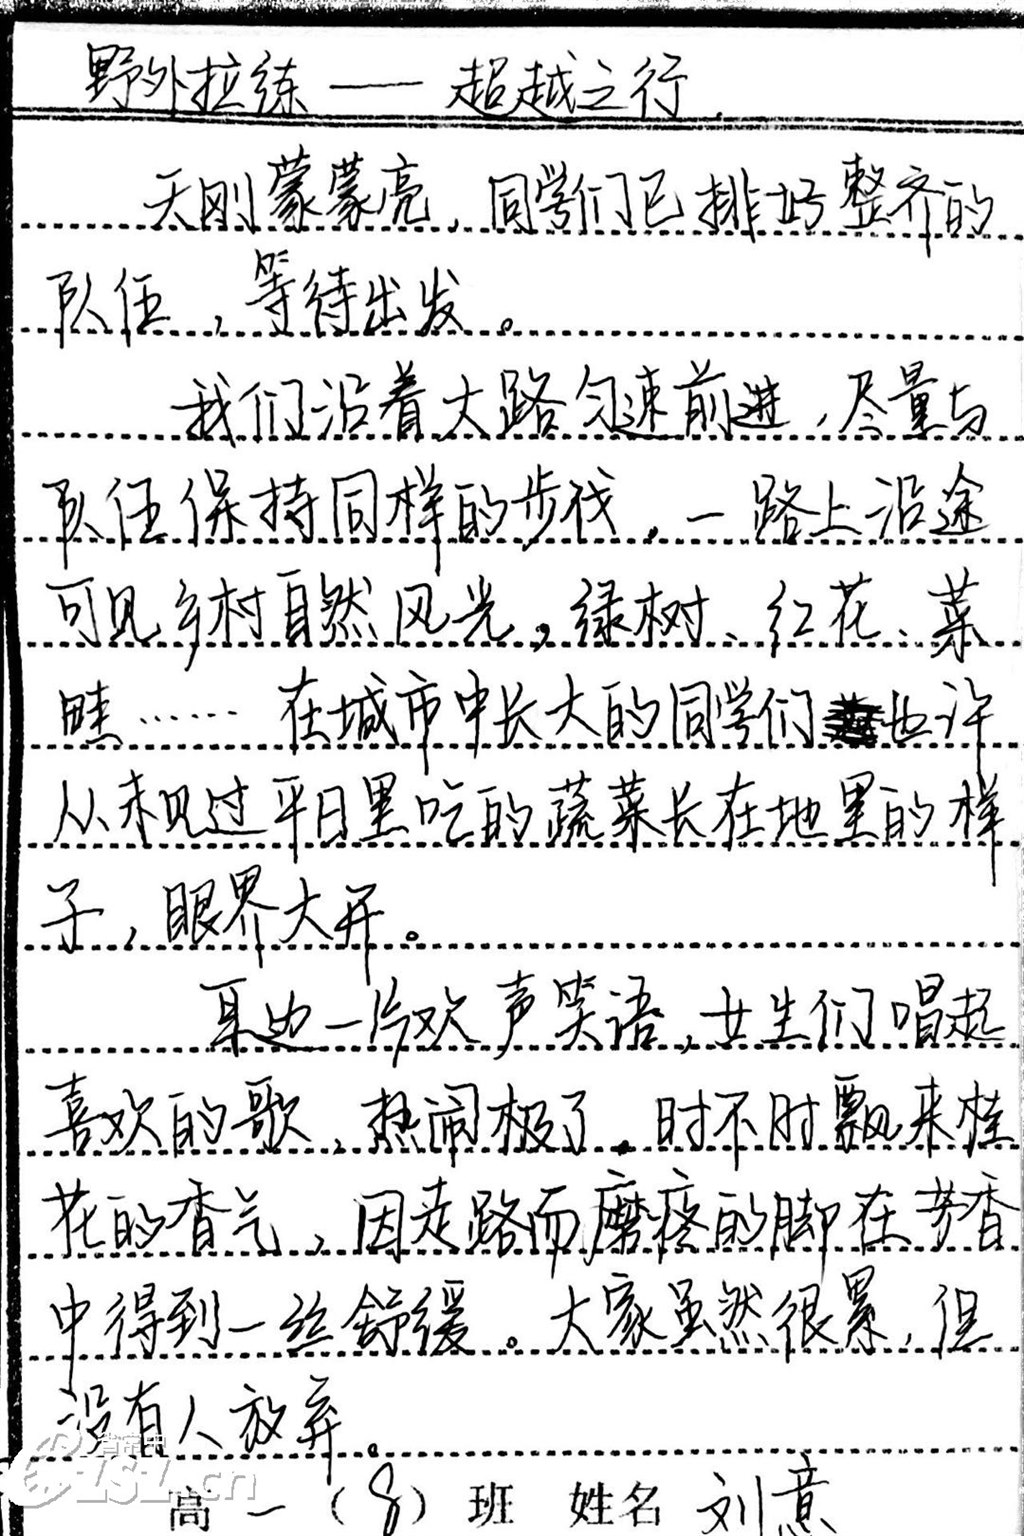 野外拉练——超越之行.
天刚蒙蒙亮,同学们已排好整齐的
队伍,等待出发。
我们沿着大路匀速前进,尽量与
队伍保持同样的步伐。一路上沿途
可见乡村自然风光。绿树、红花、菜
畦……在城市中长大的同学们也许
从未见过平日里吃的蔬菜长在地里的样
子,眼界大开。
耳边一片欢声笑语,女生们唱起
喜欢的歌,热闹极了。时不时飘来桂
花的香气,因走路而磨疼的脚在芳香
中得到一丝舒缓。大家虽然很累,但
没有人放弃。
高一(8)班 姓名 刘意